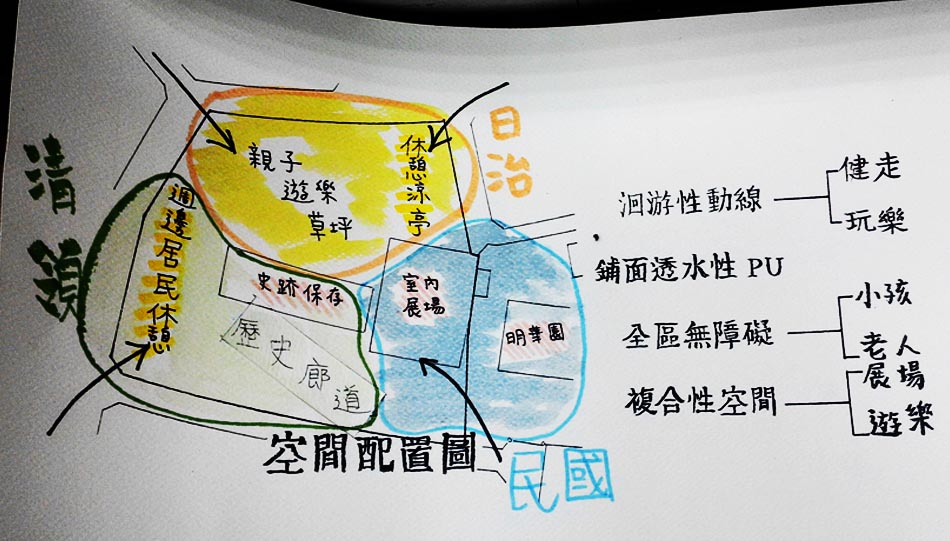 清領
日治
親子
遊樂
草坪
休憩涼亭
週邊居民休憩
史跡保存
歷史廊道
室內
展場
明華園
空間配置圖
民國
洄游性動線
健走
玩樂
鋪面透水性 PU
全區無障礙
小孩
老人
複合性空間
展場
遊樂